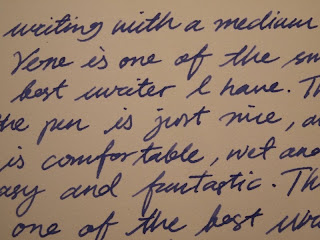 writing with a medium
Vene is one of the sm
best writer I have. Th
the pen is just nice, a
is comfortable, wet and
easy and fantastic. Th
one of the best wri